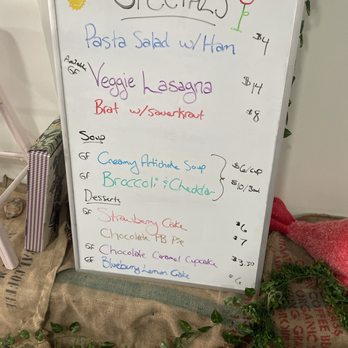 SPECIALS
Pasta Salad w/Ham $4
Available GF Veggie Lasagna $14
Brat w/sauerkraut $8
Soup
GF Creamy Artichoke Soup $6/cup
GF Broccoli & Cheddar $10/Bowl
Desserts
GF Strawberry Cake $6
Chocolate PB Pie $7
GF Chocolate Caramel Cupcake $3.50
GF Blueberry Lemon Cake